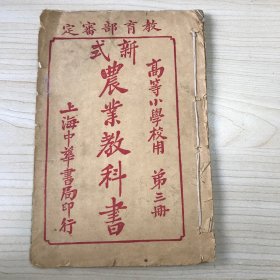 定審部育教
高等小學校用 第三冊
新式
農業教科書
上海中華書局印行